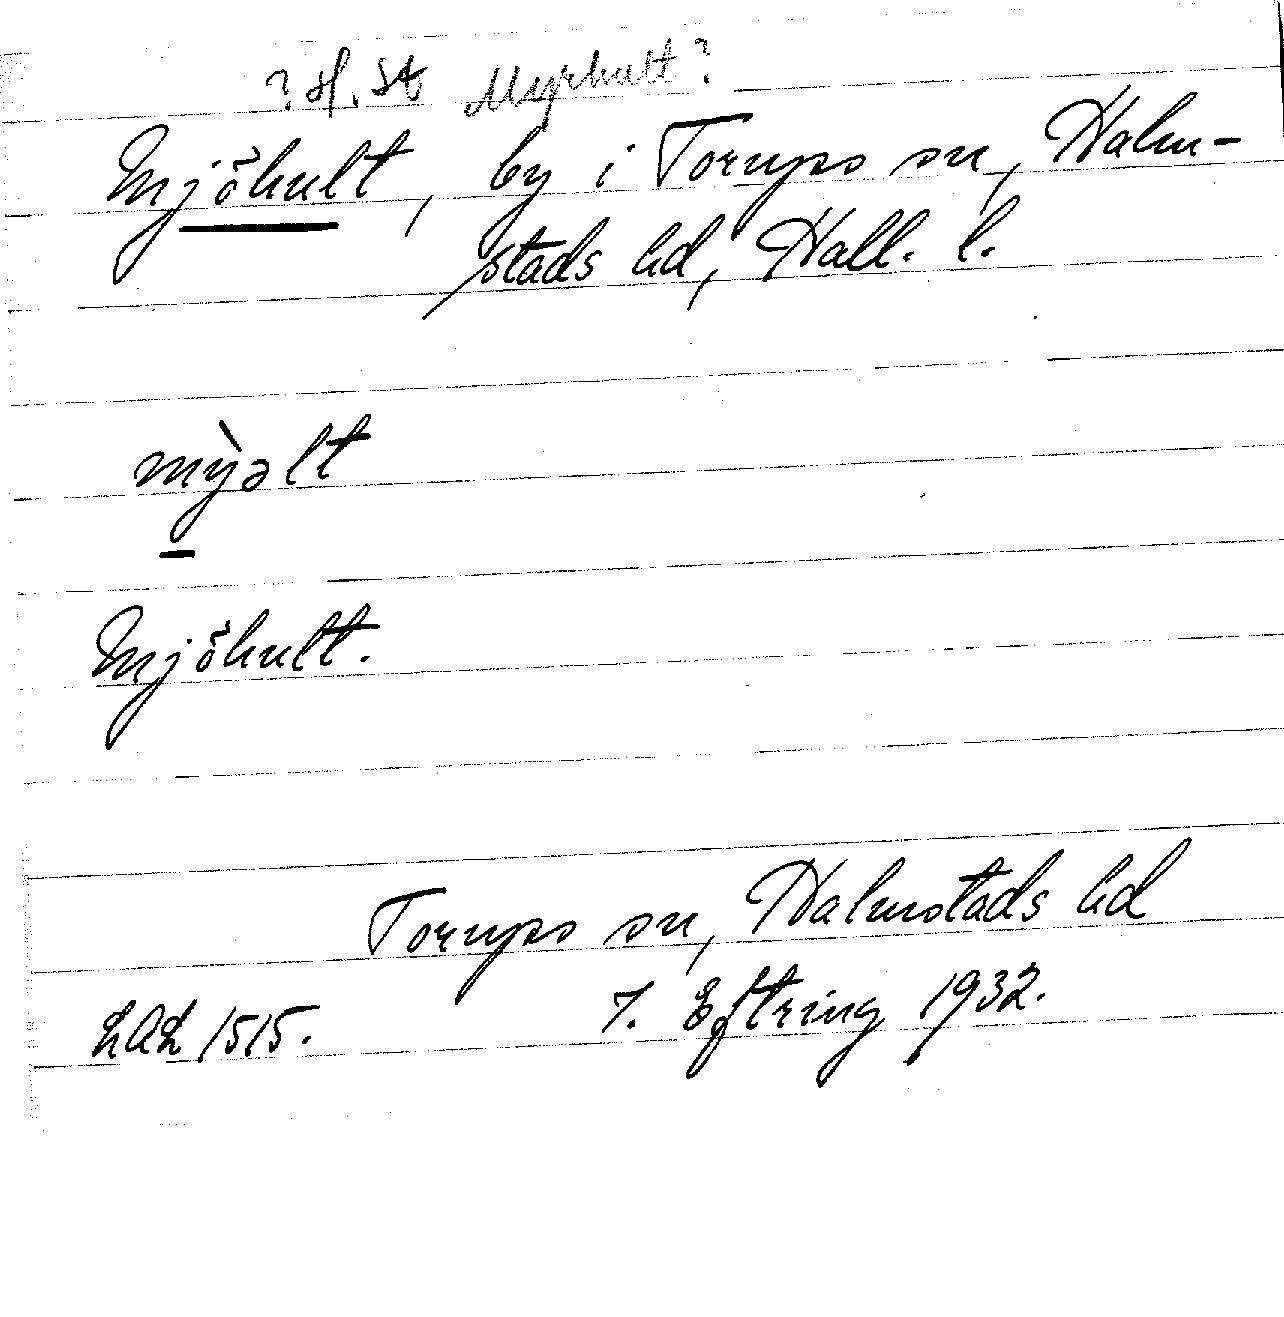 ? H. St Myrhult?
Mjöhult, by i Torups sn, Halm-
stads hd, Hall. l.
mỳəlt
Mjöhult.
Torups sn, Halmstads hd
LAL 1515. J. Eftring 1932.